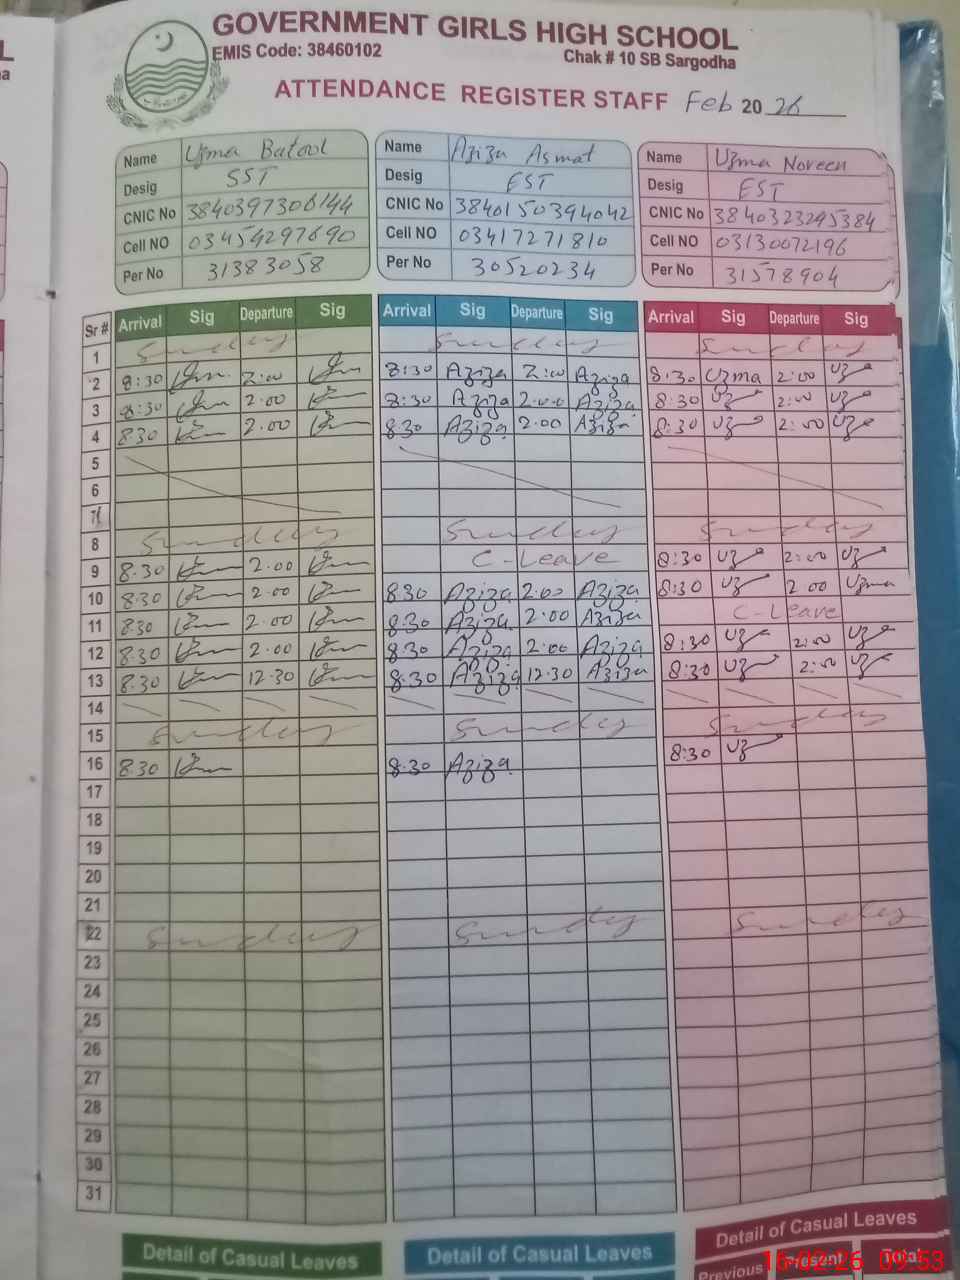 GOVERNMENT GIRLS HIGH SCHOOL
EMIS Code: 38460102 Chak # 10 SB Sargodha
ATTENDANCE REGISTER STAFF Feb 20 26
Name Uzma Batool Name Aziza Asmat Name Uzma Noreen
Desig SST Desig EST Desig EST
CNIC No 3840397306144 CNIC No 3840150394042 CNIC No 3840323295384
Cell NO 03454297690 Cell NO 03417271810 Cell NO 03130072196
Per No 31383058 Per No 30520234 Per No 31578904
Sr # Arrival Sig Departure Sig Arrival Sig Departure Sig Arrival Sig Departure Sig
1 Sunday Sunday Sunday
2 8:30 2:00 8:30 Aziza 2:00 Aziza 8:30 Uzma 2:00 Uz
3 8:30 2.00 8:30 Aziza 2.00 Aziza 8:30 Uz 2:00 Uz
4 8.30 2.00 8.30 Aziza 2.00 Aziza 8:30 Uz 2:00 Uz
5
6
7
8 Sunday Sunday Sunday
9 8.30 2.00 C-Leave 8:30 Uz 2:00 Uz
10 8.30 2.00 8.30 Aziza 2.00 Aziza 8:30 Uz 2 00 Uzma
11 8.30 2.00 8.30 Aziza 2.00 Aziza C-Leave
12 8.30 2.00 8.30 Aziza 2.00 Aziza 8:30 Uz 2:00 Uz
13 8.30 12.30 8.30 Aziza 12.30 Aziza 8:30 Uz 2:00 Uz
14
15 Sunday Sunday Sunday
16 8.30 8.30 Aziza 8:30 Uz
17
18
19
20
21
22 Sunday Sunday Sunday
23
24
25
26
27
28
29
30
31
Detail of Casual Leaves Detail of Casual Leaves Detail of Casual Leaves
Previous Present Total
16-02-26 09:53